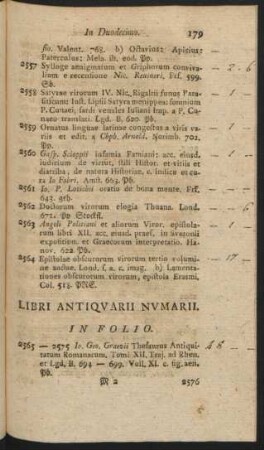 In Duodecimo. 179
fio. Valnet. 763. b) Octavius; Apicius;
Paterculus; Mela. ib. eod. Pp.
2557 Sylloge aenigmatum et Griphorum conviva- 2 - 6
lium e recensione Nic. Reusneri. Fcf. 599.
Sb.
2558 Satyrae virorum IV. Nic. Rigaltii funus Para-
siticum; Just. Lipsii Satyra menippea; somnium
P. Cunaei, sardi venales Iuliani Imp. a P. Cu-
naeo translati. Lgd. B. 620. Sb.
2559 Ornatus linguae latinae congestus a viris va-
riis et edit. a Chph. Arnold. Norimb.
Pp.
2560 Gasp. Scioppii infamia Famiani: acc. eiusd.
iudicium de stylo
diatriba, de natura Historiae, c. indice et cu-
ra Io Fabri. Amst. 663. Pp.
2561 Io. P. Lotichii oratio de bona mente. Frf.
643. Pp.
2562 Doctorum virorum elogia Thuana. Lond. - 6
671. Pp
2563 Angeli Politiani et aliorum Viror. epistola-
rum libri XII. acc. eiusd. praef. in Svetonii
exposition. et Graecorum interpretatio. Ha-
nov. 622 Pp.
2564 Epistolae obscurorum virorum tertio volumi- - 17 -
ne auctae. Lond. s. a. c. imag. b) Lamenta-
tiones obscurorum virorum, epistola Erasmi.
Col. 518. PNE.
LIBRI ANTIQVARII NVMARII.
IN FOLIO.
2565 — 2575 Io. Geo. Graevii Thesaurus Antiqui- 48 -
tatum Romanarum, Tomi XII. Traj. ad Rhen.
et Lgd. B. 694 — 699. Voll. XI. c. fig. aen.
Pp.
M 2 2576